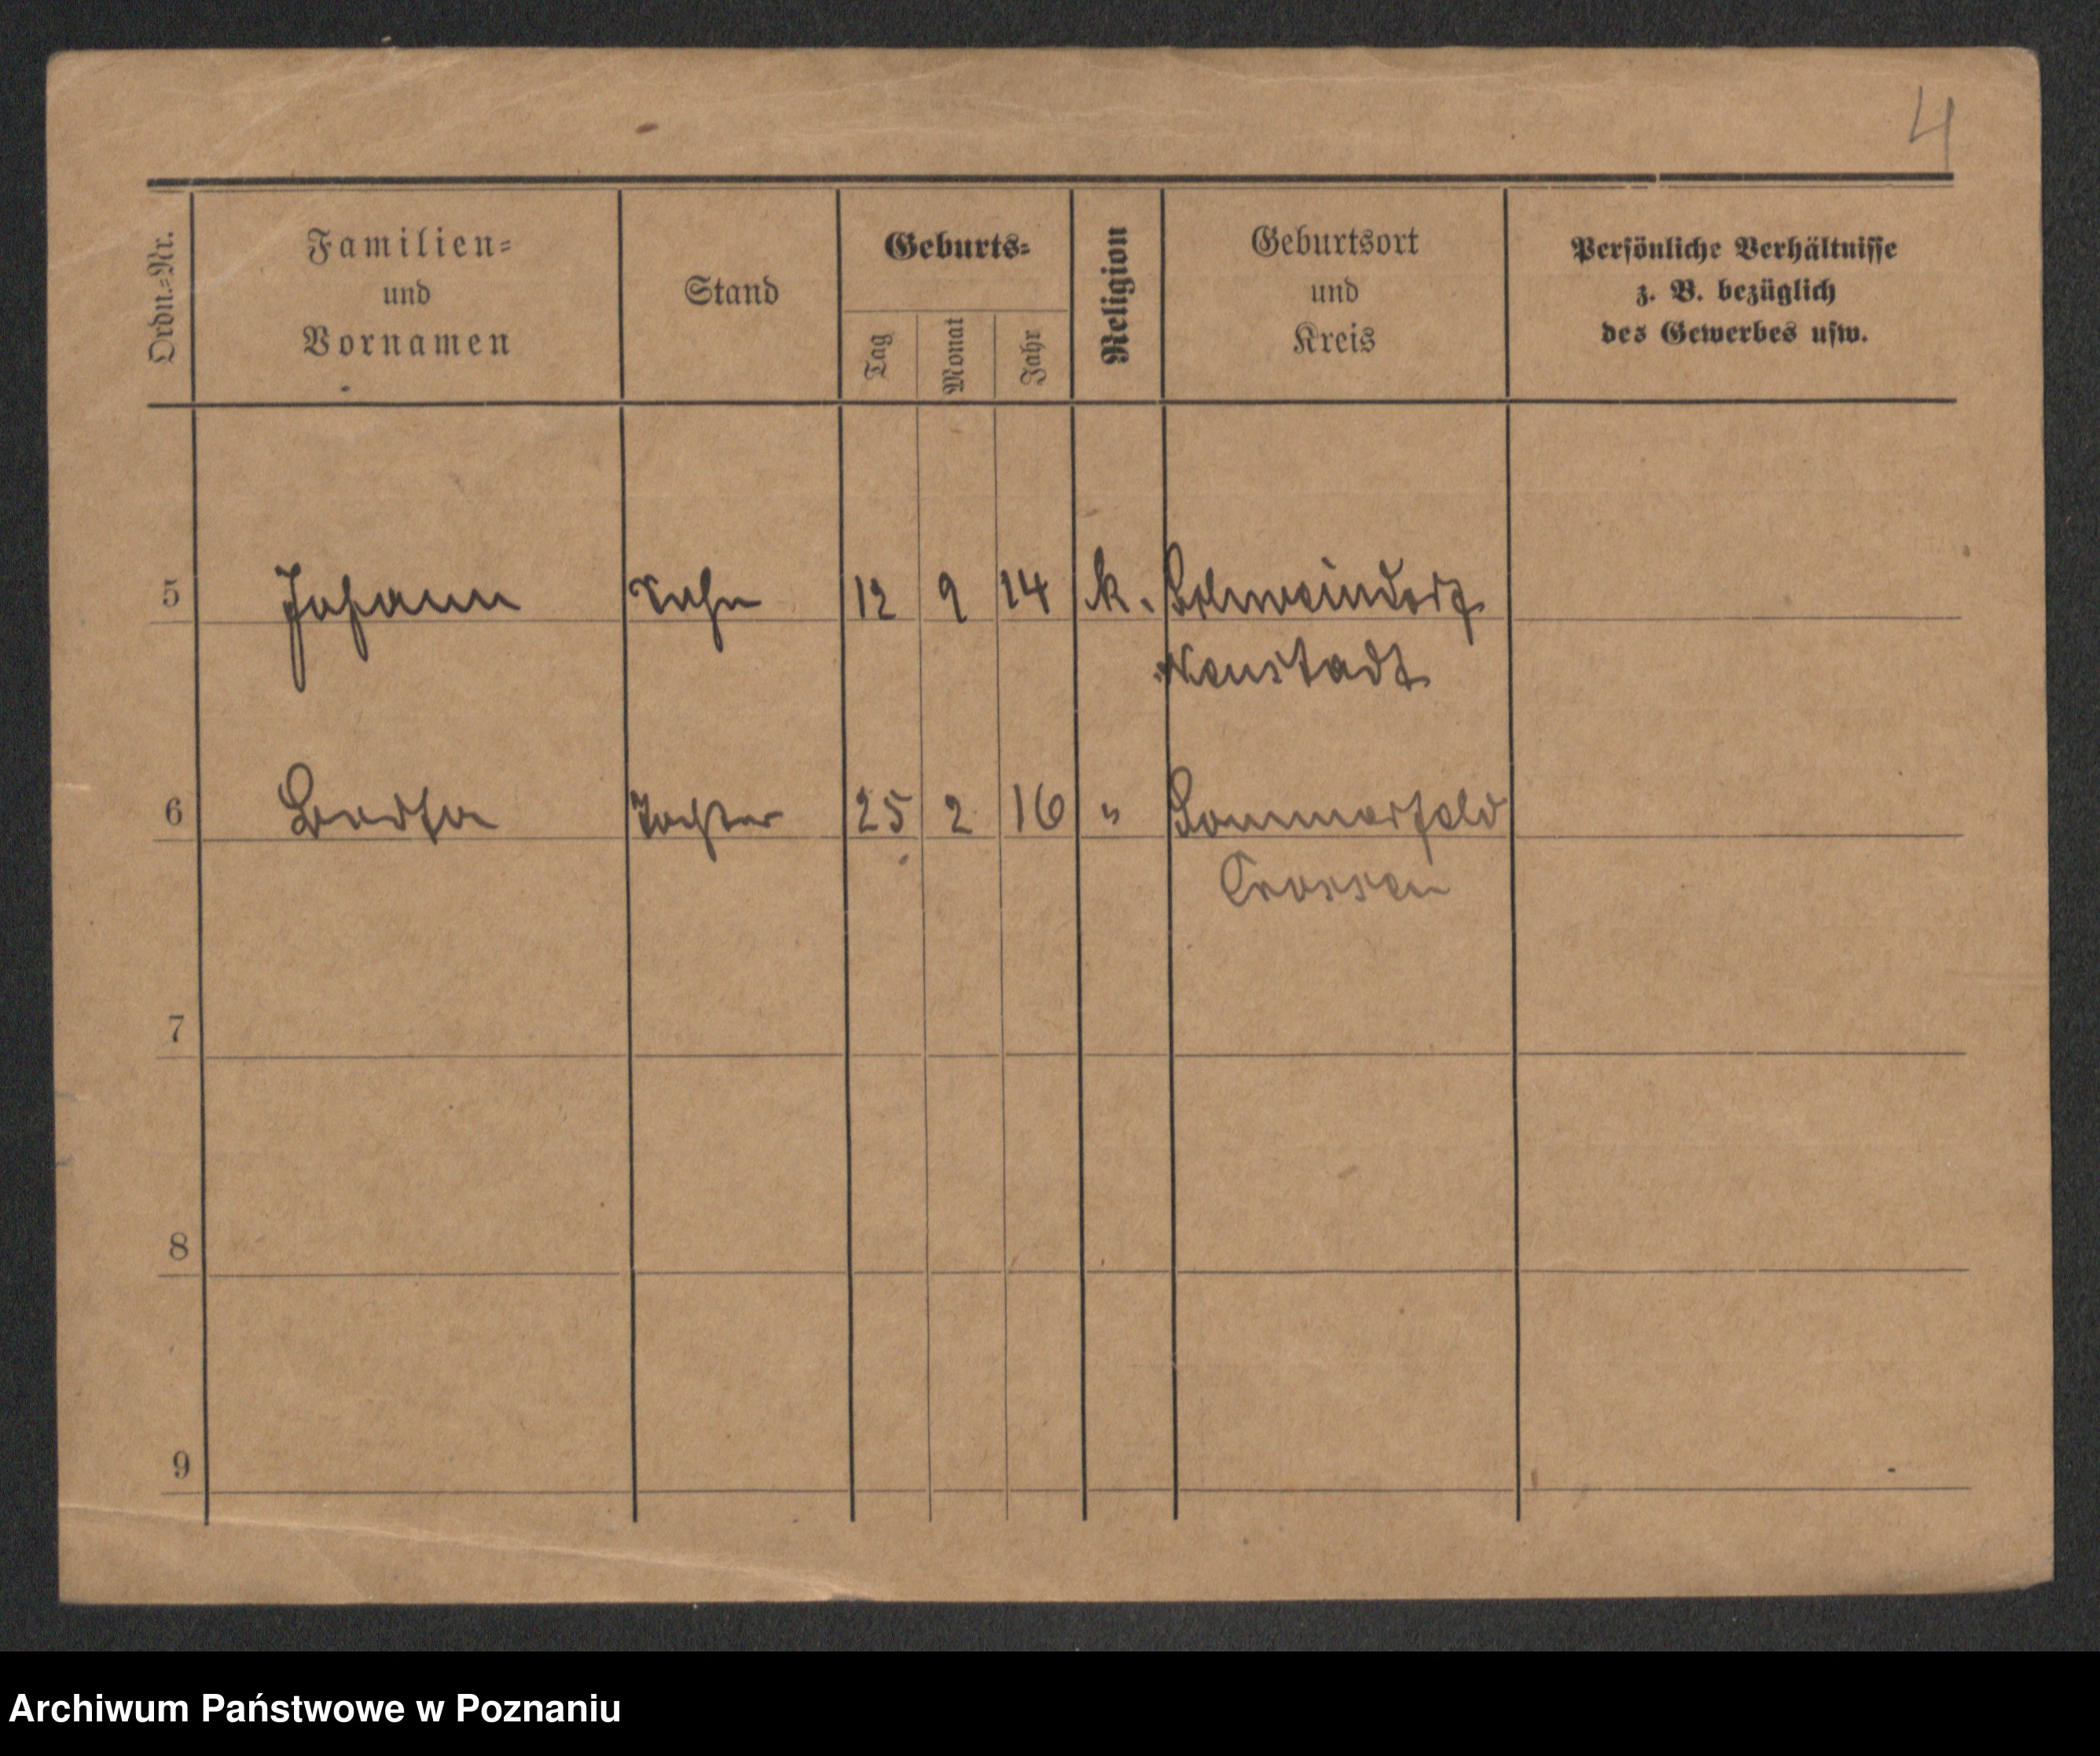 4
Ordn.-Nr.
Familien-
und
Vornamen
Stand
Geburts-
Tag
Monat
Jahr
Religion
Geburtsort
und
Kreis
Persönliche Verhältnisse
z. B. bezüglich
des Gewerbes usw.
5 Johann Sohn 12 9 14 k. Schweindorf
Neustadt
6 Tochter 25 2 16 " Sommerfeld
Crossen
7
8
9
Archiwum Państwowe w Poznaniu